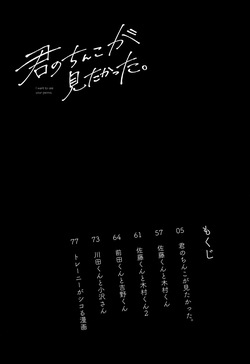 君のちんこが
見たかった。
I want to see
your penis
もくじ
05 君のちんこが見たかった。
57 佐藤くんと木村くん
61 佐藤くんと木村くん2
64 前田くんと吉野くん
73 川田くんと小沢さん
77 トレーニーがシコる漫画